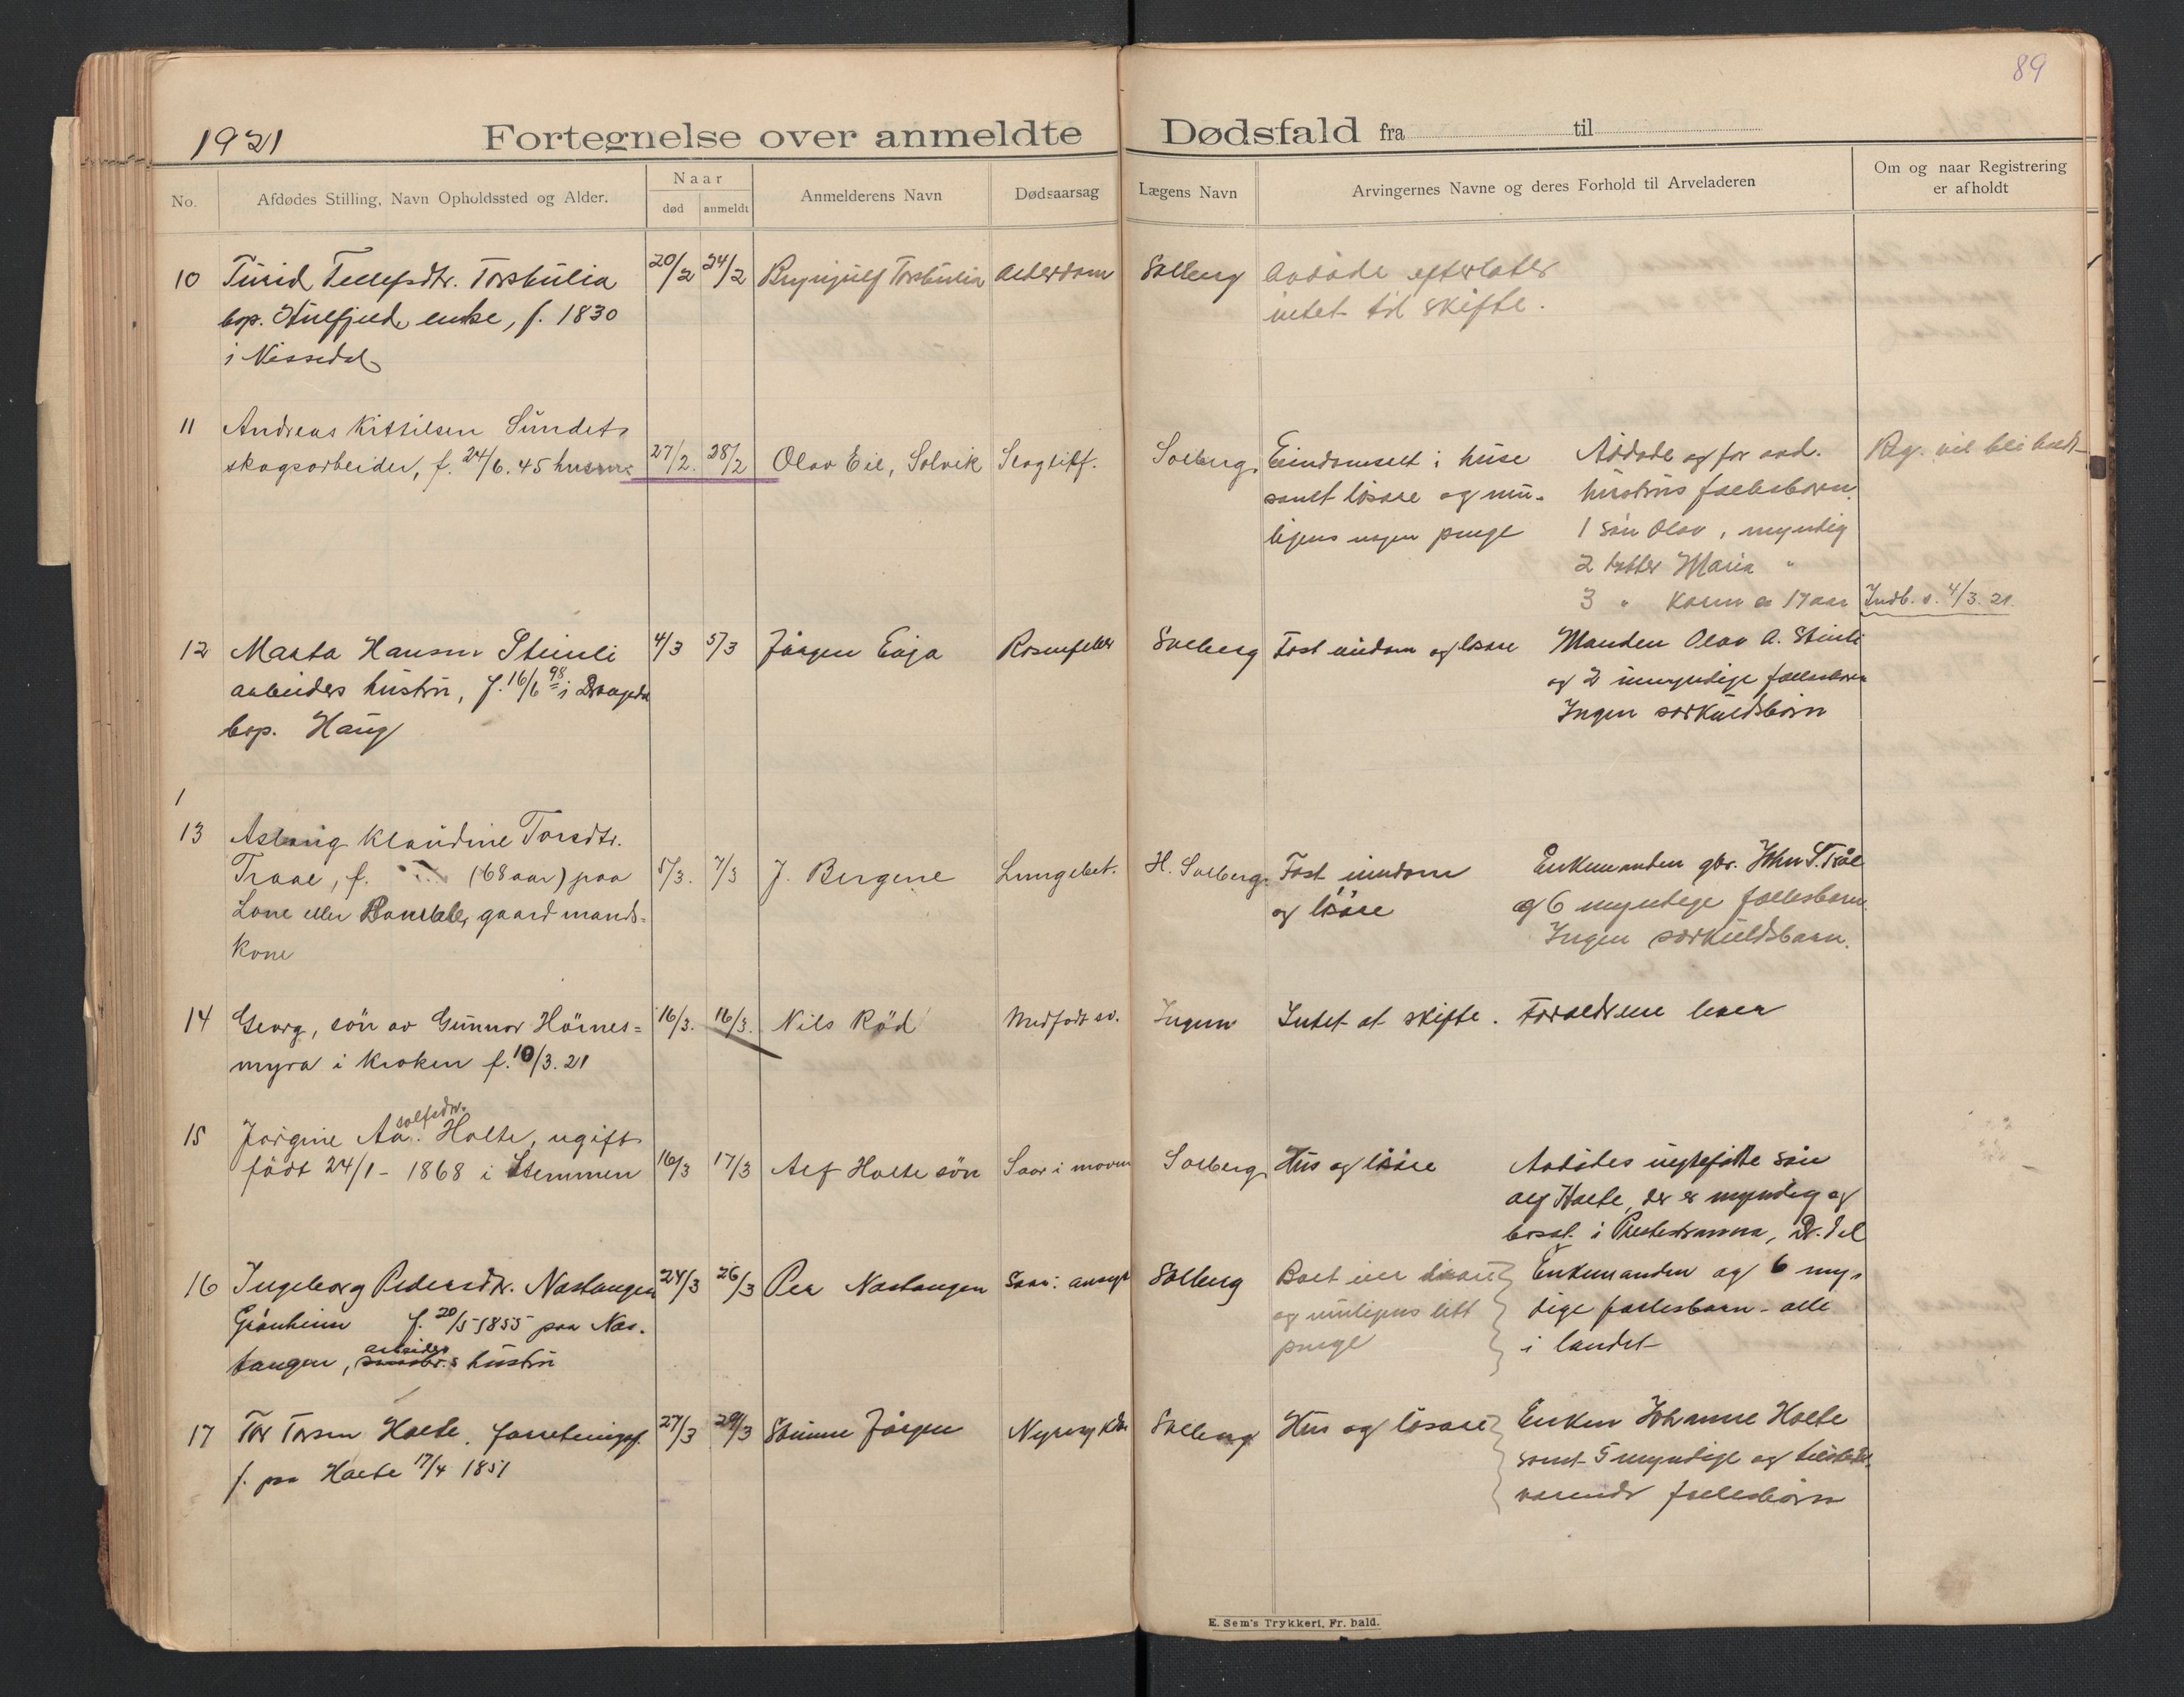 89
1921
Fortegnelse over anmeldte Dødsfald fra til
No.
Afdødes Stilling, Navn Opholdssted og Alder.
Naar
død
anmeldt
Anmelderens Navn
Dødsaarsag
Lægens Navn
Arvingernes Navne og deres Forhold til Arveladeren
Om og naar Registrering
er afholdt
10 Turid Tellefsdtr. Torsbulia 20/2 24/2 Brynjulf Torsbulia Alderdom Solberg Avdøde efterlater
bop. enke, f. 1830 intet til skifte.
i Nissedal
11 Andreas Kittilsen Sundet
skogsarbeider, f. 24/6. 45 27/2. 28/2 Olav Eie, Solvik Slagtilf. Solberg. Eiendomsett i huse Avdøde og før avd. Reg. vil bli holdt
samt løsøre og mu- hustrus fællesbørn
ligens nogen penge 1 søn Olav, myndig
2 datter Maria "
3 " Karen a 17 aar Indb. s. 4/3. 21.
12 Marta Hansen Stienli 4/3 5/3 Jørgen Eaja Rosenfeber Solberg Fast eiendom og løsøre Manden Olav A. Stienli
arbeiders hustru, f. 16/6 98 i Drangedal og 2 umyndige fællesbørn
bop. Haug Ingen særkuldsbørn
1
13 Aslaug Klaudine Torsdtr.
Traae, f. (68 aar) paa 5/3. 7/3 J. Bergene Lungebet. H. Solberg. Fast eiendom Enkemanden gbr. John S. Tråe
Lone eller gaardmands- og løsøre og 6 myndige fællesbarn.
kone Ingen særkuldsbarn.
14 Georg, søn av Gunnar Hörnes- 16/3. 16/3. Nils Rød Medfødt sv. Ingen Intet at skifte. Forældrene lever
myra i Kroken f. 10/3. 21
15 Jørgine Aa. Holte, ugift
solfsdtr.
født 24/1 - 1868 i Stemmen 16/3 17/3 Alf Holte søn Saar i maven Solberg Hus og løsøre Avdødes uegtefødte søn
Alf Holte, der er myndig og
bosat i Prestestranna, Dr.dal
16 Ingeborg Pedersdtr. Nastangen 24/3 26/3 Per Nastangen Saar i ansigt Solberg Boet eier løsøre Enkemanden og 6 myn-
Grönheim f. 20/5 1855 paa Nas- og muligens litt dige fællesbarn - alle
tangen, arbeiders hustru penge i landet
17 Tor Torsen Holte. forretningsf. 27/3 29/3 Jørgen Solberg Hus og løsøre Enken Johanne Holte
f. paa Holte 17/4 1851 samt 5 myndige og tilstede-
værende fællesbørn
E. Sem's Trykkeri, Fr. hald.